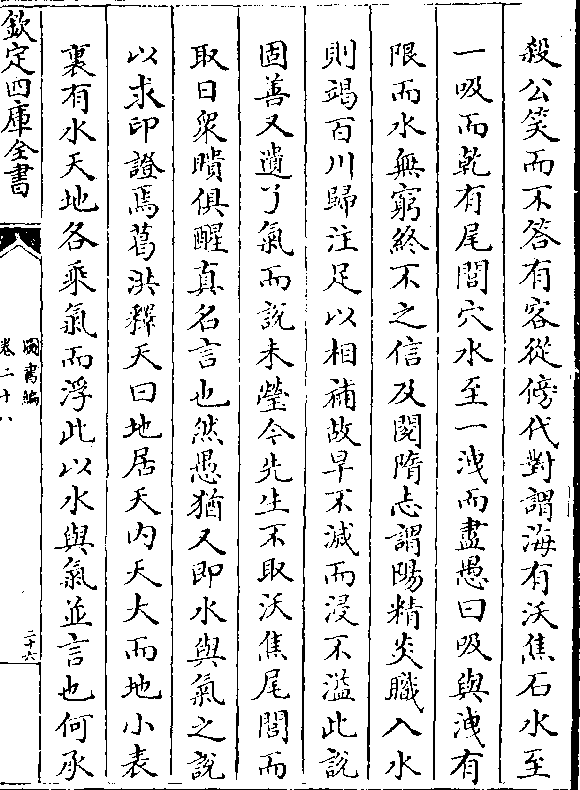 殺公笑而不答有客從傍代對謂海有沃焦石水至
一吸而乾有尾閭穴水至一洩而盡愚曰吸與洩有
限而水無窮終不之信及閱隋志謂陽精炎熾入水
則竭百川歸注足以相補故旱不減而浸不溢此說
固善又遺了氣而說未瑩今先生不取沃焦尾閭而
取日衆聵俱醒真名言也然愚猶又即水與氣之說
以求印證焉葛洪釋天曰地居天內天大而地小表
裏有水天地各乘氣而浮此以水與氣並言也何承
欽定四庫全書
圖書編
卷二十八
二十六